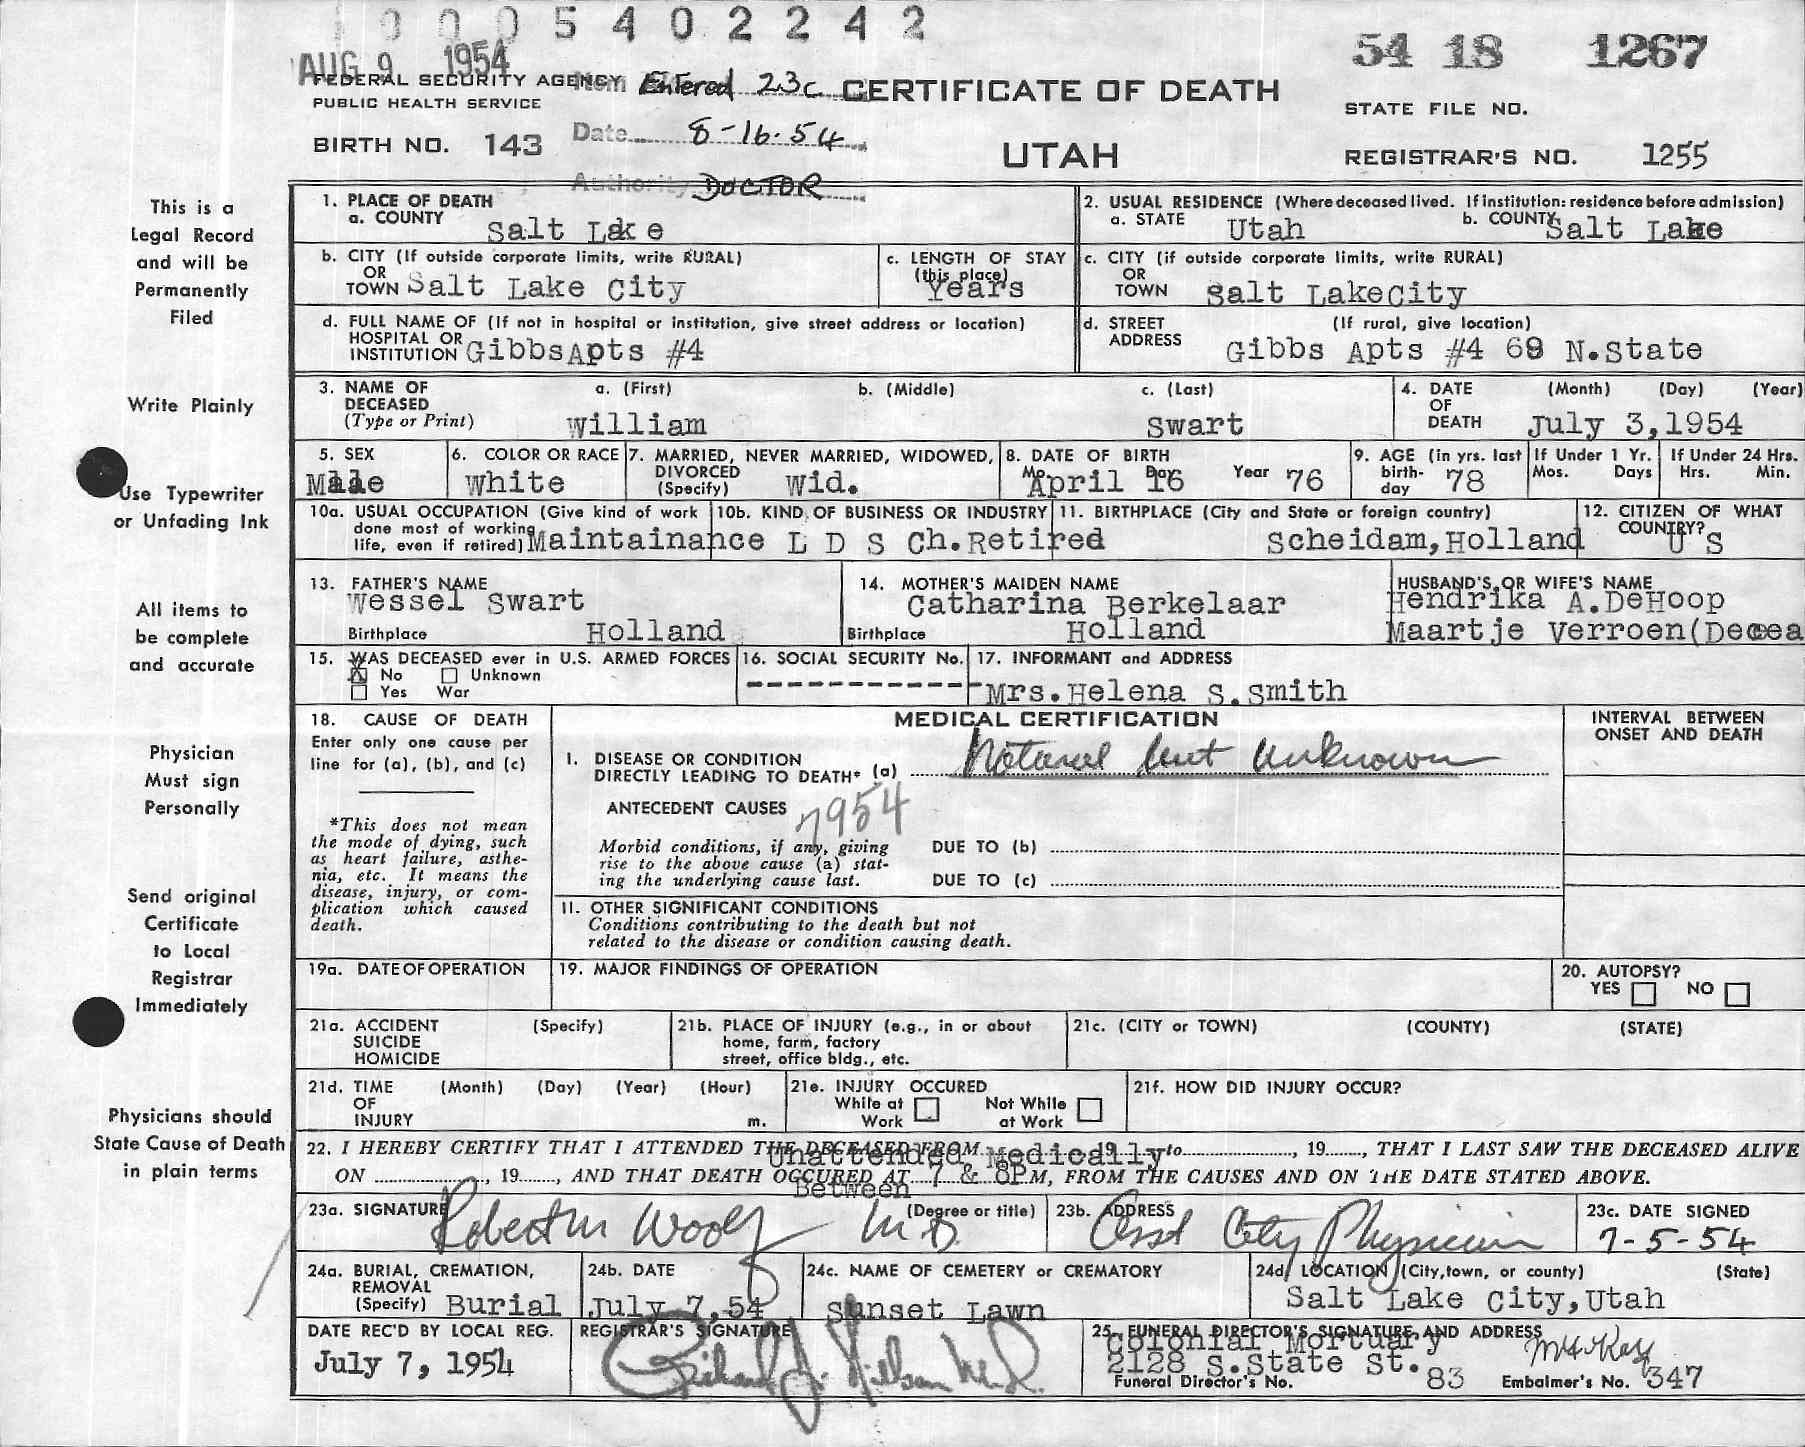 0 0 0 5 4 0 2 2 4 2
AUG 9 1954
54 18 1267
FEDERAL SECURITY AGENCY Item Entered 23c CERTIFICATE OF DEATH
PUBLIC HEALTH SERVICE
STATE FILE NO.
BIRTH NO. 143 Date 8-16-54 UTAH REGISTRAR'S NO. 1255
Authority DOCTOR
This is a
Legal Record
and will be
Permanently
Filed
Write Plainly
Use Typewriter
or Unfading Ink
All items to
be complete
and accurate
Physician
Must sign
Personally
Send original
Certificate
to Local
Registrar
Immediately
Physicians should
State Cause of Death
in plain terms
1. PLACE OF DEATH
a. COUNTY Salt Lake
2. USUAL RESIDENCE (Where deceased lived. If institution: residence before admission)
a. STATE Utah b. COUNTY Salt Lake
b. CITY (If outside corporate limits, write RURAL)
OR
TOWN Salt Lake City
c. LENGTH OF STAY
(this place)
Years
c. CITY (if outside corporate limits, write RURAL)
OR
TOWN Salt LakeCity
d. FULL NAME OF (If not in hospital or institution, give street address or location)
HOSPITAL OR
INSTITUTION GibbsApts #4
d. STREET (If rural, give location)
ADDRESS Gibbs Apts #4 69 N.State
3. NAME OF a. (First) b. (Middle) c. (Last)
DECEASED
(Type or Print) William Swart
4. DATE (Month) (Day) (Year)
OF
DEATH July 3,1954
5. SEX
Male
6. COLOR OR RACE
White
7. MARRIED, NEVER MARRIED, WIDOWED,
DIVORCED
(Specify) Wid.
8. DATE OF BIRTH
Mo. Day Year
April 16 76
9. AGE (in yrs. last
birth-
day 78
If Under 1 Yr.
Mos. Days
If Under 24 Hrs.
Hrs. Min.
10a. USUAL OCCUPATION (Give kind of work
done most of working
life, even if retired) Maintainance L D S Ch.Retired
10b. KIND OF BUSINESS OR INDUSTRY
11. BIRTHPLACE (City and State or foreign country)
Scheidam,Holland
12. CITIZEN OF WHAT
COUNTRY?
U S
13. FATHER'S NAME
Wessel Swart
Birthplace Holland
14. MOTHER'S MAIDEN NAME
Catharina Berkelaar
Birthplace Holland
HUSBAND'S OR WIFE'S NAME
Hendrika A.DeHoop
Maartje Verroen(Decea
15. WAS DECEASED ever in U.S. ARMED FORCES
X No Unknown
Yes War
16. SOCIAL SECURITY No.
------------
17. INFORMANT and ADDRESS
Mrs.Helena S.Smith
18. CAUSE OF DEATH
Enter only one cause per
line for (a), (b), and (c)
*This does not mean
the mode of dying, such
as heart failure, asthe-
nia, etc. It means the
disease, injury, or com-
plication which caused
death.
MEDICAL CERTIFICATION
I. DISEASE OR CONDITION
DIRECTLY LEADING TO DEATH* (a) Natural but Unknown
ANTECEDENT CAUSES 7954
Morbid conditions, if any, giving
rise to the above cause (a) stat-
ing the underlying cause last.
DUE TO (b)
DUE TO (c)
II. OTHER SIGNIFICANT CONDITIONS
Conditions contributing to the death but not
related to the disease or condition causing death.
INTERVAL BETWEEN
ONSET AND DEATH
19a. DATE OF OPERATION
19. MAJOR FINDINGS OF OPERATION
20. AUTOPSY?
YES NO
21a. ACCIDENT (Specify)
SUICIDE
HOMICIDE
21b. PLACE OF INJURY (e.g., in or about
home, farm, factory
street, office bldg., etc.
21c. (CITY or TOWN) (COUNTY) (STATE)
21d. TIME (Month) (Day) (Year) (Hour)
OF
INJURY m.
21e. INJURY OCCURED
While at Not While
Work at Work
21f. HOW DID INJURY OCCUR?
22. I HEREBY CERTIFY THAT I ATTENDED THE DECEASED FROM 19 to , 19 , THAT I LAST SAW THE DECEASED ALIVE
Unattended Medically
ON , 19 , AND THAT DEATH OCCURED AT 7 & 8P M, FROM THE CAUSES AND ON THE DATE STATED ABOVE.
Between
23a. SIGNATURE (Degree or title)
Robert M Woolf M.D.
23b. ADDRESS
Asst City Physician
23c. DATE SIGNED
7-5-54
24a. BURIAL, CREMATION,
REMOVAL
(Specify) Burial
24b. DATE
July 7,54
24c. NAME OF CEMETERY or CREMATORY
Sunset Lawn
24d. LOCATION (City, town, or county) (State)
Salt Lake City,Utah
DATE REC'D BY LOCAL REG.
July 7, 1954
REGISTRAR'S SIGNATURE
Richard J. Nelson M.D.
25. FUNERAL DIRECTOR'S SIGNATURE AND ADDRESS
Colonial Mortuary
2128 S.State St.
Funeral Director's No. 83 Embalmer's No. 347